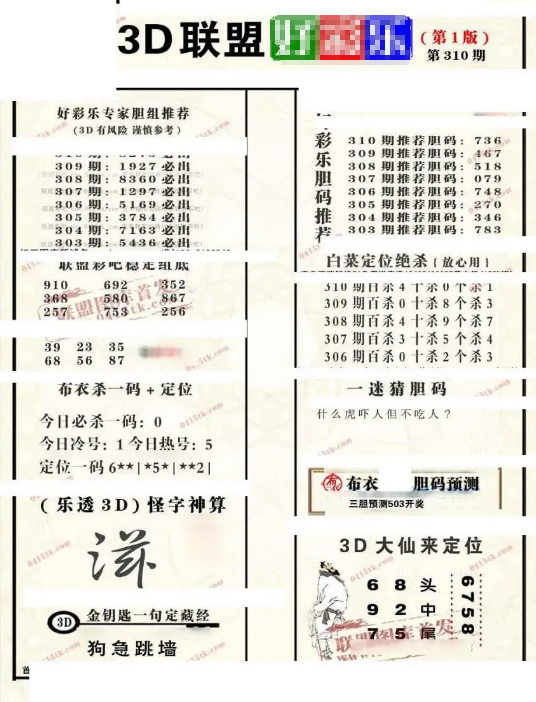 3D联盟好彩乐
(第1版)
第310期
好彩乐专家胆组推荐
(3D有风险 谨慎参考)
309期: 1927必出
308期: 8360必出
307期: 1297必出
306期: 5169必出
305期: 3784必出
304期: 7163必出
303期: 5436必出
联盟彩吧稳定组底
910 692 352
368 580 867
257 753 256
39 23 35
68 56 87
布衣杀一码+定位
今日必杀一码: 0
今日冷号: 1 今日热号: 5
定位一码 6**|*5*|**2|
(乐透3D)怪字神算
滋
3D 金钥匙一句定藏经
狗急跳墙
彩乐胆码推荐
310期推荐胆码: 736
309期推荐胆码: 467
308期推荐胆码: 518
307期推荐胆码: 079
306期推荐胆码: 748
305期推荐胆码: 270
304期推荐胆码: 346
303期推荐胆码: 783
白菜定位绝杀{放心用}
310期百杀4十杀0个杀1
309期百杀0十杀8个杀3
308期百杀4十杀9个杀7
307期百杀3十杀5个杀4
306期百杀0十杀2个杀3
一迷猜胆码
什么虎吓人但不吃人?
布衣 胆码预测
三胆预测503开奖
3D大仙来定位
6 8 头
9 2 中
7 5 尾
6758
联盟图库首发
0415tk.com